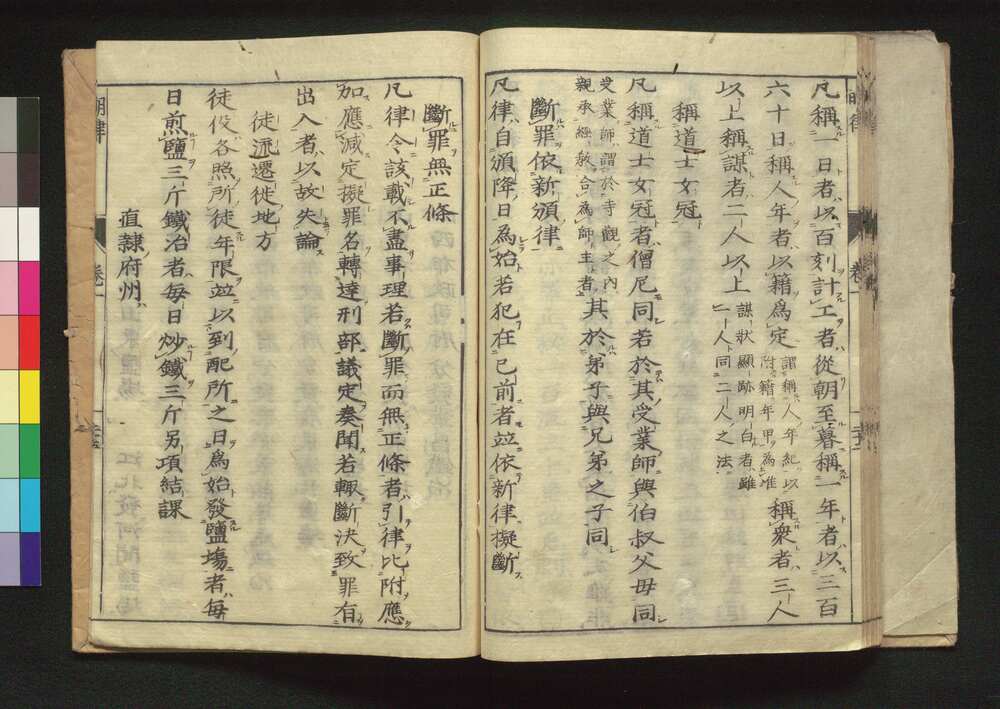 凡稱一日者以百刻計工者從朝至暮稱一年者以三百
六十日稱人年者以籍爲定謂稱人年紀以附籍年甲爲准稱衆者三人
以上稱謀者二人以上謀狀顯跡明白者雖一人同二人之法
稱道士女冠
凡稱道士女冠者僧尼同若於其受業師與伯叔父母同
受業師謂於寺觀之内親承經教合爲師主者其於弟子與兄弟之子同
斷罪依新頒律
凡律自頒降日爲始若犯在已前者竝依新律擬斷
卷一
斷罪無正條
凡律令該載不盡事理若斷罪而無正條者引律比附應
加應減定擬罪名轉達刑部議定奏聞若輒斷決致罪有
出入者以故失論
徒流遷徙地方
徒役各照所徒年限竝以到配所之日爲始發鹽場者每
日煎鹽三斤鐵冶者每日炒鐵三斤另項結課
直隸府州
明律
卷一